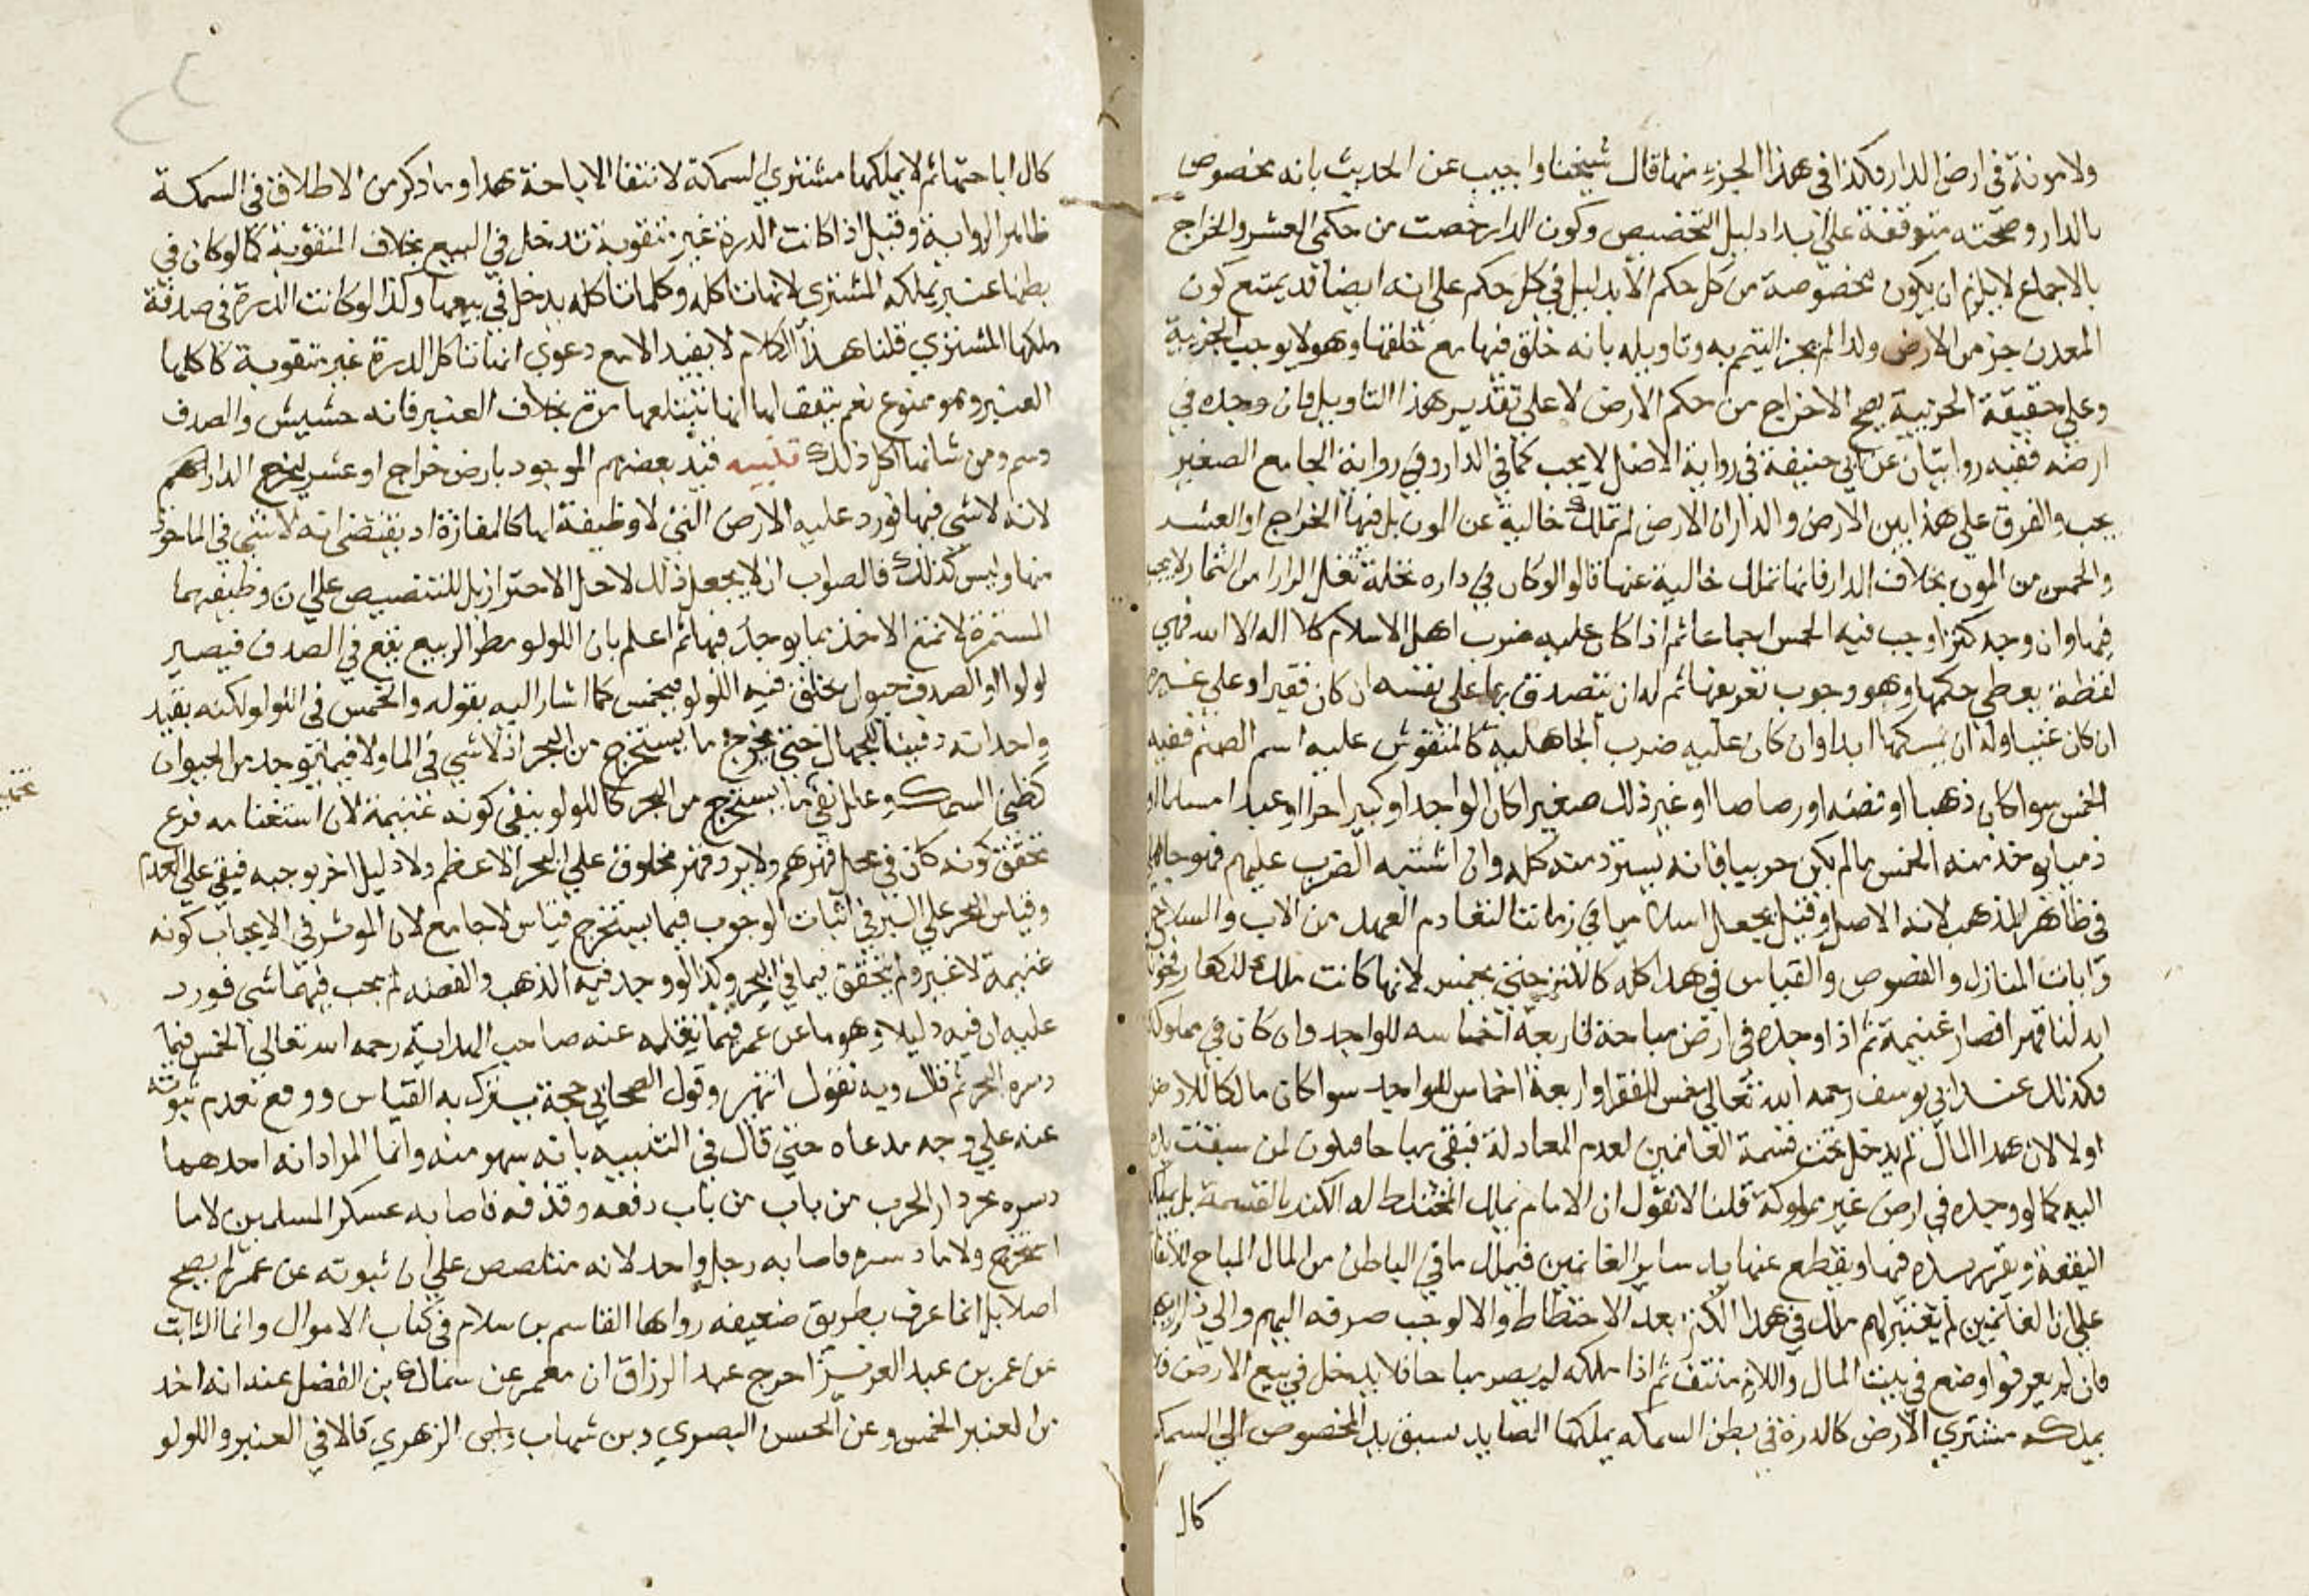 ولا مونة في ارض الدار فكذا في هذا الجزء منها قال شيخنا واجيب عن الحديث بانه مخصوص
بالدار وصحته متوقفة على ابدا دليل التخصيص وكون الدار خصت من حكمي العشر والخراج
بالاجماع لا يلزم ان يكون مخصوصة من كل حكم الا بدليل في كل حكم على انه ايضا قد يمتنع كون
المعدن جز من الارض ولذا لم يجز التيمم به وتاويله بانه خلق فيها مع خلقتها وهو لا يوجب الجزئية
وعلى حقيقة الجزئية يصح الاخراج من حكم الارض لا على تقدير هذا التاويل فان وجده في
ارضه ففيه روايتان عن ابي حنيفة في رواية الاصل لا يجب كما في الدار وفي رواية الجامع الصغير
يجب والفرق على هذا بين الارض والدار ان الارض لم تملك خالية عن المون بل فيها الخراج او العشر
والخمس من المون بخلاف الدار فانها تملك خالية عنها قالوا لو كان في داره نخلة تغل اكرارا من الثمار لا يجب
فيها وان وجد كنزا وجب فيه الخمس اجماعا ثم اذا كان عليه ضرب اهل الاسلام كلا اله الا الله فهي
لقطة يعطي حكمها وهو وجوب تعريفها ثم له ان يتصدق بها على نفسه ان كان فقيرا وعلى غيره
ان كان غنيا وله ان يمسكها ابدا وان كان عليه ضرب الجاهلية كالمنقوش عليه اسم الصنم ففيه
الخمس سوا كان ذهبا او فضة او رصاصا او غير ذلك صغيرا كان الواجد او كبيرا حرا او عبدا مسلما او
ذميا يوخذ منه الخمس ما لم يكن حربيا فانه يسترد منه كله وان اشتبه الضرب عليهم فهو جاهلي
في ظاهر المذهب لانه الاصل وقيل يجعل اسلاميا في زماننا لتقادم العهد من الاب والسلاح
و ابات المنازل والفصوص والقياس في هذا كله كالكنز حتى يخمس لانها كانت ملك للكفار فحو
ايدلنا قهرا فصار غنيمة ثم اذا وجده في ارض مباحة فاربعة اخماسه للواجد وان كان في مملوكة
فكذلك عند ابي يوسف رحمه الله تعالى خمس للفقرا واربعة اخماس للواجد سوا كان مالكا للارض
اولا لان هذا المال لم يدخل تحت قسمة الغانمين لعدم المعادلة فبقي مباحا فيكون لمن سبقت يده
اليه كما لو وجده في ارض غير مملوكة قلنا لا نقول ان الامام يملك المختط له الكنز بالقسمة بل يملكه
البقعة ويقرر يده فيها ويقطع عنها يد ساير الغانمين فيملك ما في الباطن من المال المباح للاتفاق
على ان الغانمين لم يعتبر لهم ملك في هذا الكنز بعد الاختطاط والا لوجب صرفه اليهم والى ذراريهم
فان لم يعرفوا وضع في بيت المال واللازم منتف ثم اذا ملكه لم يصر مباحا فلا يدخل في بيع الارض فلا
يملكه مشتري الارض كالدرة في بطن السمكة يملكها الصايد لسبق يد الخصوص الى السمكة
كال
كال اباحتها ثم لا يملكها مشتري السمكة لانتفا الاباحة هذا وما ذكر من الاطلاق في السمكة
ظاهر الرواية وقيل اذا كانت الدرة غير مثقوبة تدخل في البيع بخلاف المثقوبة كما لو كان في
بطنها عنبر يملكه المشتري لانها تاكله وكلما تاكله يدخل في بيعها وكذا لو كانت الدرة في صدفة
ملكها المشتري قلنا هذا الكلام لا يفيد الا مع دعوي انها تاكل الدرة غير مثقوبة كاكلها
العنبر وهو ممنوع نعم يتفق لها انها تبتلعها مرة بخلاف العنبر فانه حشيش والصدف
دسم ومن شانها اكل ذلك تنبيه قيد بعضهم الموجود بارض خراج او عشر ليخرج الدار
لانه لا شي فيها فورد عليه الارض التي لا وظيفة لها كالمفازة اذ يقتضي انه لا شي في الماخوذ
منها وليس كذلك فالصواب ان لا يجعل ذلك لاجل الاحتراز بل للتنصيص على ان وظيفتهما
المستمرة لا تمنع الاخذ مما يوجد فيها ثم اعلم بان اللولو مطر الربيع يقع في الصدف فيصير
لولوا او الصدف حيوان يخلق فيه اللولو فيخمس كما اشار اليه بقوله والخمس في اللولو لكنه يقيد
واحدا ته دفينا للجمال حتى يخرج ما يستخرج من البحر اذ لا شي في الما ولا فيما يوجد من الحيوان
كظبي السمك وعلل نفي ما يستخرج من البحر كاللولو بنفي كونه غنيمة لان استغنامه فرع
تحقق كونه كان في محل قهرهم ولا يرد قهر مخلوق على البحر الاعظم ولا دليل اخر يوجبه فبقي على العدم
وقياس البحر على البر في اثبات الوجوب فيما يستخرج قياس لا جامع لان الموثر في الايجاب كونه
غنيمة لا غير ولم يتحقق فيما في البحر وكذا لو وجد فيه الذهب والفضة لم يجب فيهما شي فورد
عليه ان فيه دليلا وهو ما عن عمر فيما نقله عنه صاحب الهداية رحمه الله تعالى الخمس فيما
دسره البحر ثم قال وبه نقول انتهى وقول الصحابي حجة يترك به القياس ووقع بعدم ثبوته
عنه على وجه مدعاه حتى قال في التنبيه بانه سهو منه وانما المراد انه احدهما
دسره بحر دار الحرب من باب من باب دفعه وقذفه فاصابه عسكر المسلمين لا ما
استخرج ولا ما دسره فاصابه رجل واحد لانه متلصص على ان ثبوته عن عمر لم يصح
اصلا بل انما عرف بطريق ضعيفه رواها القاسم بن سلام في كتاب الاموال وانما الثابت
عن عمر بن عبد العزيز اخرج عبد الرزاق ان معمر عن سماك بن الفضل عند انه اخذ
من العنبر الخمس وعن الحسن البصري وبن شهاب الزهري قالا في العنبر واللولو